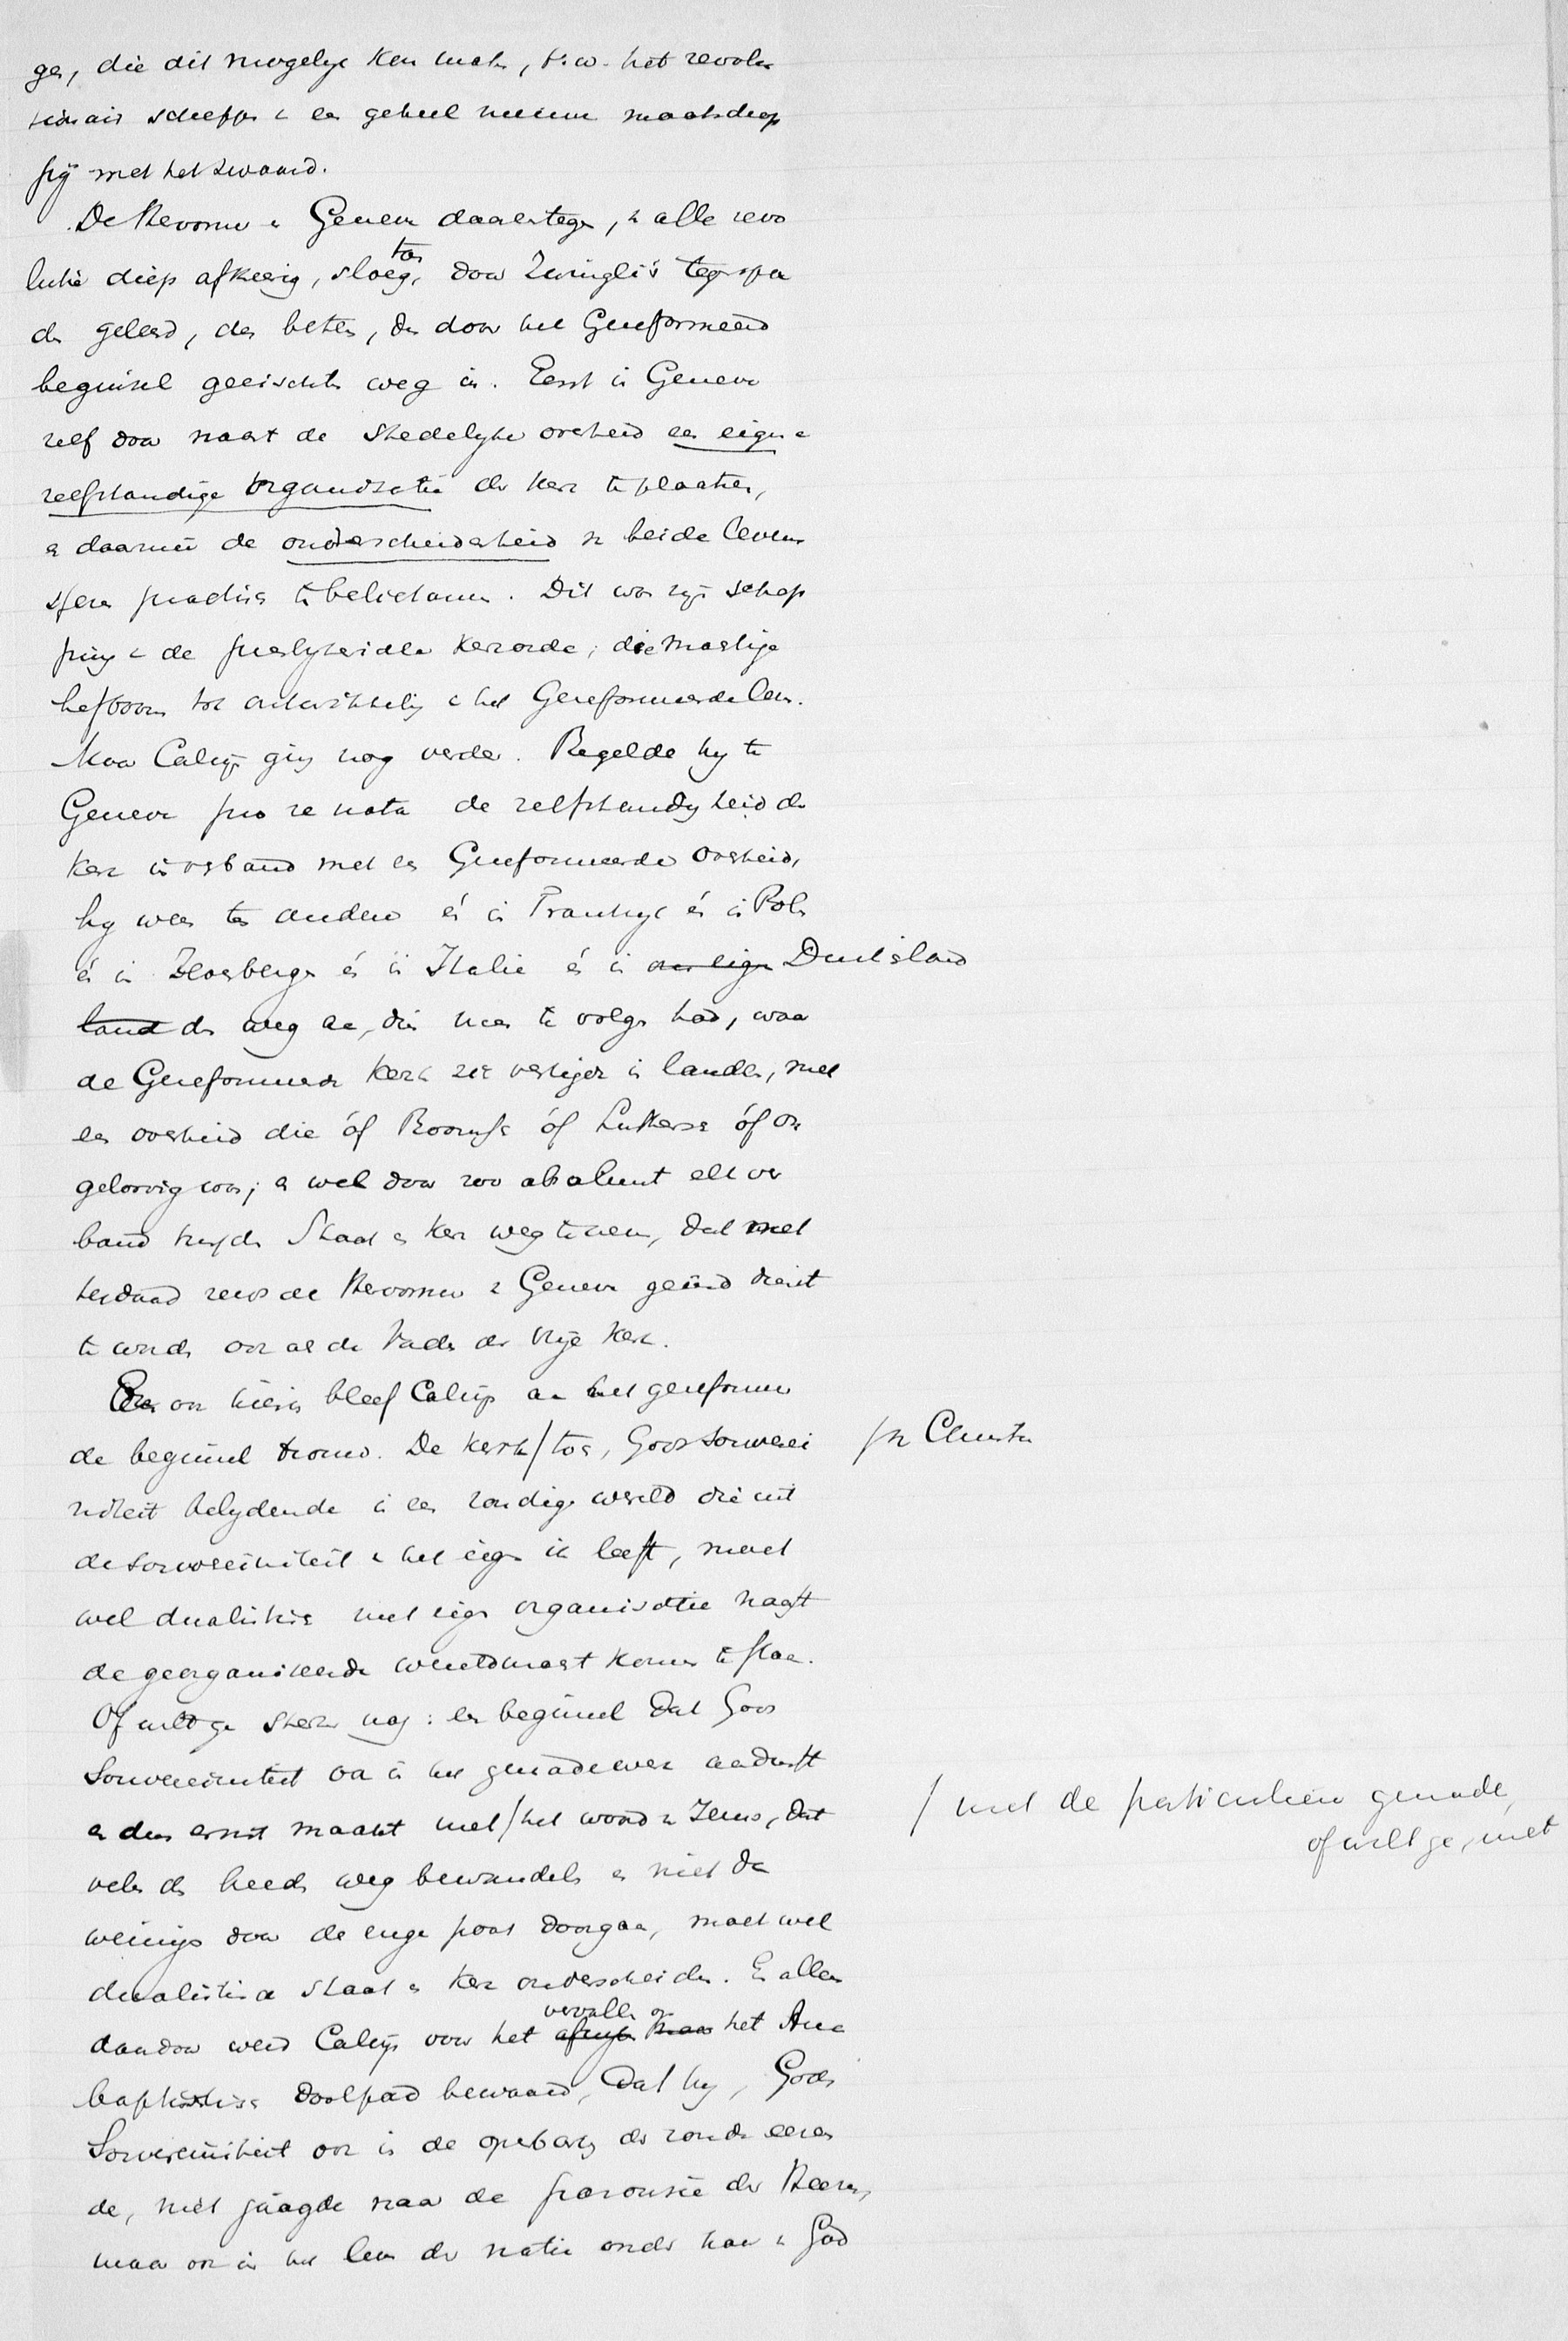 ge, die dit mogelyk ken make, t.w. het revolu
tionair scheppe v ee geheel nieuwe maatschap
pij met het zwaard.
De Hervormer v Geneve daarentege, v alle revo
lutie diep afkeerig, sloeg toe, door Zwingli's tegenspoe
de geleerd, de betere, de door het Gereformeerd
beginsel geeischte weg in. Eerst in Geneve
zelf door naast de stedelyke overheid ee eigene
zelfstandige organisatie der kerk te plaatse,
e daarmee de onderscheidenheid v beide levens
sfere practisch te belichame. Dit was zyn schep
ping v de presbyteriale kerkorde; die machtige
hefboom tot ontwikkeling v het Gereformeerde leve.
Maar Calvijn ging nog verder. Regelde hy te
Geneve pro re nata de zelfstandigheid der
kerk in verband met ee Gereformeerde overheid,
hy wees te andere én in Frankryk én in Pole
én in Zevenberge én in Italie én in onze eige Duitschland
land de weg aa, die me te volge had, waar
de Gereformeerde kerk zich vestigde in lande, met
ee overheid die óf Roomsch óf Luthersch óf on
geloovig was; e wel door zoo absoluut elk ver
band tussche Staat e Kerk weg te neme, dat met
terdaad reeds de Hervormer v Geneve geëerd dient
te worde ook als de Vader der Vrije Kerk.
En ook hierin bleef Calvijn aa het gereformeer
de beginsel trouw. De kerk / toch, Gods Souverei / v Christus
niteit belydende in ee zondige wereld die uit
de souvereiniteit v het eige ik leeft, moet
wel dualistisch met eige organisatie naast
de georganiseerde wereldmacht kome te staa.
Of wilt ge sterker nog: ee beginsel dat Gods
Souvereiniteit ook in het genadewerk aadurft
e dus ernst maakt met / het woord v Jezus, dat / met de particuliere genade, of wilt ge, met
vele de breede weg bewandele e niet da
weinige door de enge poort doorgaa, moet wel
dualistisch staat e kerk onderscheide. En allee
daardoor werd Calvijn voor het vervalle op het Ana
baptistische doolpad bewaard, dat hy, Gods
Souvereiniteit ook in de openbaring der zonde eeren
de, niet jaagde naar de parousie des Heere,
maar ook in het leve der natie onder haar v God